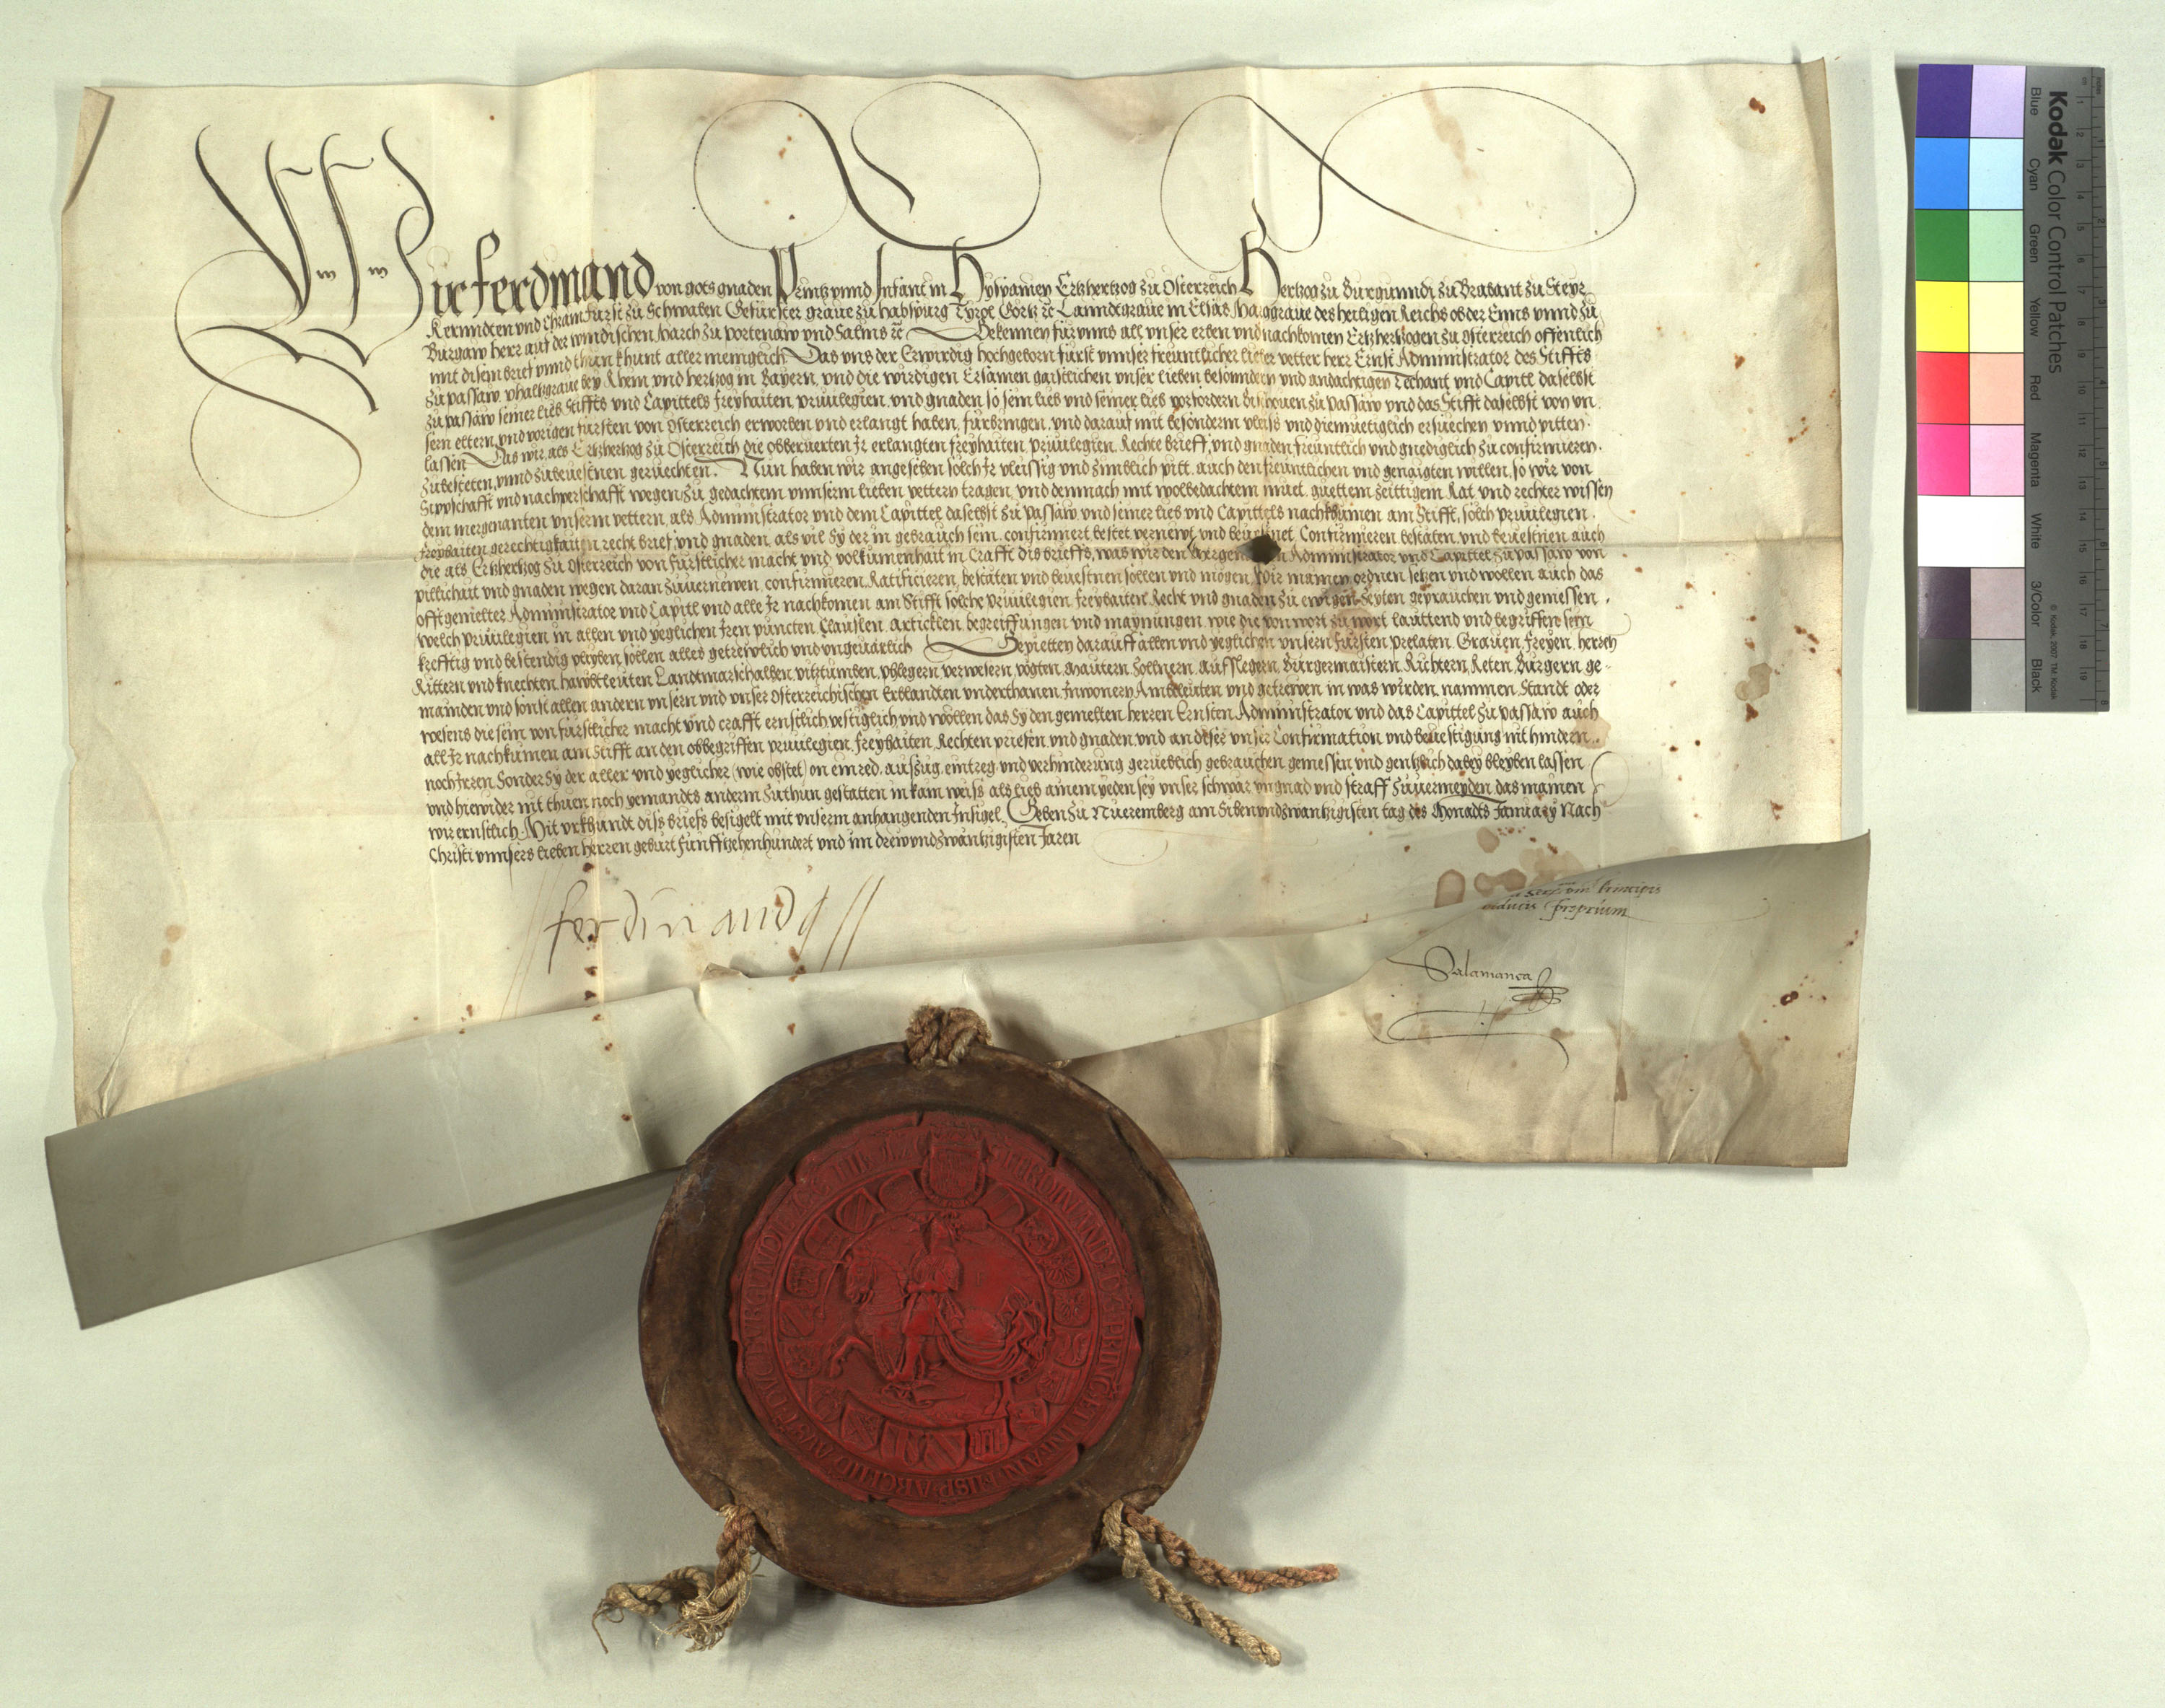 Wir Ferdinand von gots gnaden Printz vnnd Infant in Hyspanien Ertzhertzog zu Osterreich Hertzog zu Burgunndi zu Brabant zu Steyr
Kernndten vnd Chrain Furst zu Schwaben Gefürster graue zu habspurg Tyrol Görtz ꝛc Lanndtgraue in Elsas Marggraue des heiligen Reichs ob der Enns vnnd zu
Burgaw herr auf der windischen March zu Portenaw vnd Salins ꝛc Bekennen für vnns all vnser erben vnd nachkomen Ertzhertzogen zu Osterreich offentlich
mit disem brief vnnd thun khunt aller meniglich Das vns der Erwirdig hochgeborn furst vnnser freuntlicher lieber vetter herr Ernst Administrator des Stiffts
zu passaw phaltzgraue bey Rhein vnd hertzog in Bayern, vnd die wirdigen Ersamen gaistlichen vnser lieben besonndern vnd andachtigen Techant vnd Capitl daselbst
zu passaw seiner lieb Stiffts vnd Capittels freyhaiten, priuilegien, vnd gnaden so sein lieb vnd seiner lieb vorfordern Bischouen zu Passaw vnd das Stifft daselbst von vn
sern eltern, vnd vorigen fursten von Osterreich erworben vnd erlangt haben, furbringen, vnd darauf mit besonderm vleiss vnd diemuetiglich ersuechen vnnd pitten
lassen Das wir als Ertzhertzog zu Osterreich die obberuerten Ir erlangten freyhaiten, priuilegien, Rechte brieff, vnd gnaden freuntlich vnd gnediglich zu confirmieren.
zubesteten, vnnd zubeuestnen geruechten. Nun haben wir angesehen solch Ir vleissig vnd zimblich pitt, auch den freuntlichen vnd genaigten willen, so wir von
Sippschafft vnd nachperschafft wegen, zu gedachtem vnnserm lieben vettern tragen, vnd demnach mit wolbedachtem muet, guettem zeittigem Rat, vnd rechter wissen
dem mergenanten vnserm vettern, als Administrator vnd dem Capittel daselbst zu Passaw, vnd seiner lieb vnd Capittels nachkhumen am Stifft, solch priuilegien.
freyhaiten gerechtigkaiten recht brief, vnd gnaden, als vil Sy der in gebrauch sein, confirmiert bestet vernewt, vnd beuestnet, Confirmieren bestäten, vnd beuestnen auch
die als Ertzhertzog zu Osterreich von furstlicher macht vnd volkumenhait in Crafft dis brieffs, was wir den Administrator vnd Capittel zu Passaw von
pillichait vnd gnaden wegen daran zuuernewen, confirmieren, Ratificieren, bestäten vnd beuestnen sollen vnd mögen, Wir mainen ordnen setzen vnd wollen auch das
offtgemelter Administrator vnd Capitl vnd alle Ir nachkomen am Stifft solche priuilegien freyhaiten Recht vnd gnaden zu ewigen Zeyten geprauchen vnd geniessen.
welch priuilegien in allen vnd yeglichen Iren puncten, Clauslen, articklen, begreiffungen vnd maynungen, wie die von wort zu wort lauttend vnd begriffen sein
krefftig vnd bestendig pleyben sollen alles getrewlich vnd vngeuarlich Gepietten darauff allen vnd yeglichen vnsern Fursten, Prelaten, Grauen, Freyen, herren
Rittern vnd knechten, haubtleuten Landtmarschalhen, vitztumben, phlegern verwesern, vögten, Mautern, Zollnern, Aufslegern, Burgermaistern, Richtern, Reten, Burgern ge-
mainden vnd sonst allen andern vnsern vnd vnser Osterreichischen Erblandten vnderthanen, Inwonern, Ambtleuten vnd getrewen in was wirden, nammen, Standt oder
wesens die sein von furstlicher macht vnd crafft ernstlich vestiglich vnd wöllen das Sy den gemelten herren Ernsten Administrator vnd das Capittel zu Passaw auch
all Ir nachkumen am Stifft an den obbegriffen priuilegien, freyhaiten, Rechten, priefen, vnd gnaden, vnd an diser vnser Confirmation vnd beuestigung nit hindern.
noch Irren, Sonder Sy der aller vnd yeglicher (wie obstet) on einred, auszug, eintreg vnd verhinderung geruelich gebrauchen geniessen vnd gentzlich dabey bleyben lassen
vnd hiewider nit thuen noch yemandts anderm zuthun gestatten in kain weiss als lieb ainem yeden sey vnser schwar vngnad vnd straff zuuermeyden, das mainen
wir ernstlich. Mit vrkhundt diss briefs besigelt mit vnserm anhangenden Insigel. Geben zu Nueremberg am Sibenvndzwantzigisten tag des Monadts January Nach
Christi vnnsers lieben herren geburt funfftzehenhundert vnd im drewvndzwantzigisten Jaren
Ferdinandus
Principis
proprium
Salamanca
Kodak Color Control Patches
Blue Cyan Green Yellow Red Magenta White 3/Color Black
© Kodak, 2007 TM: Kodak